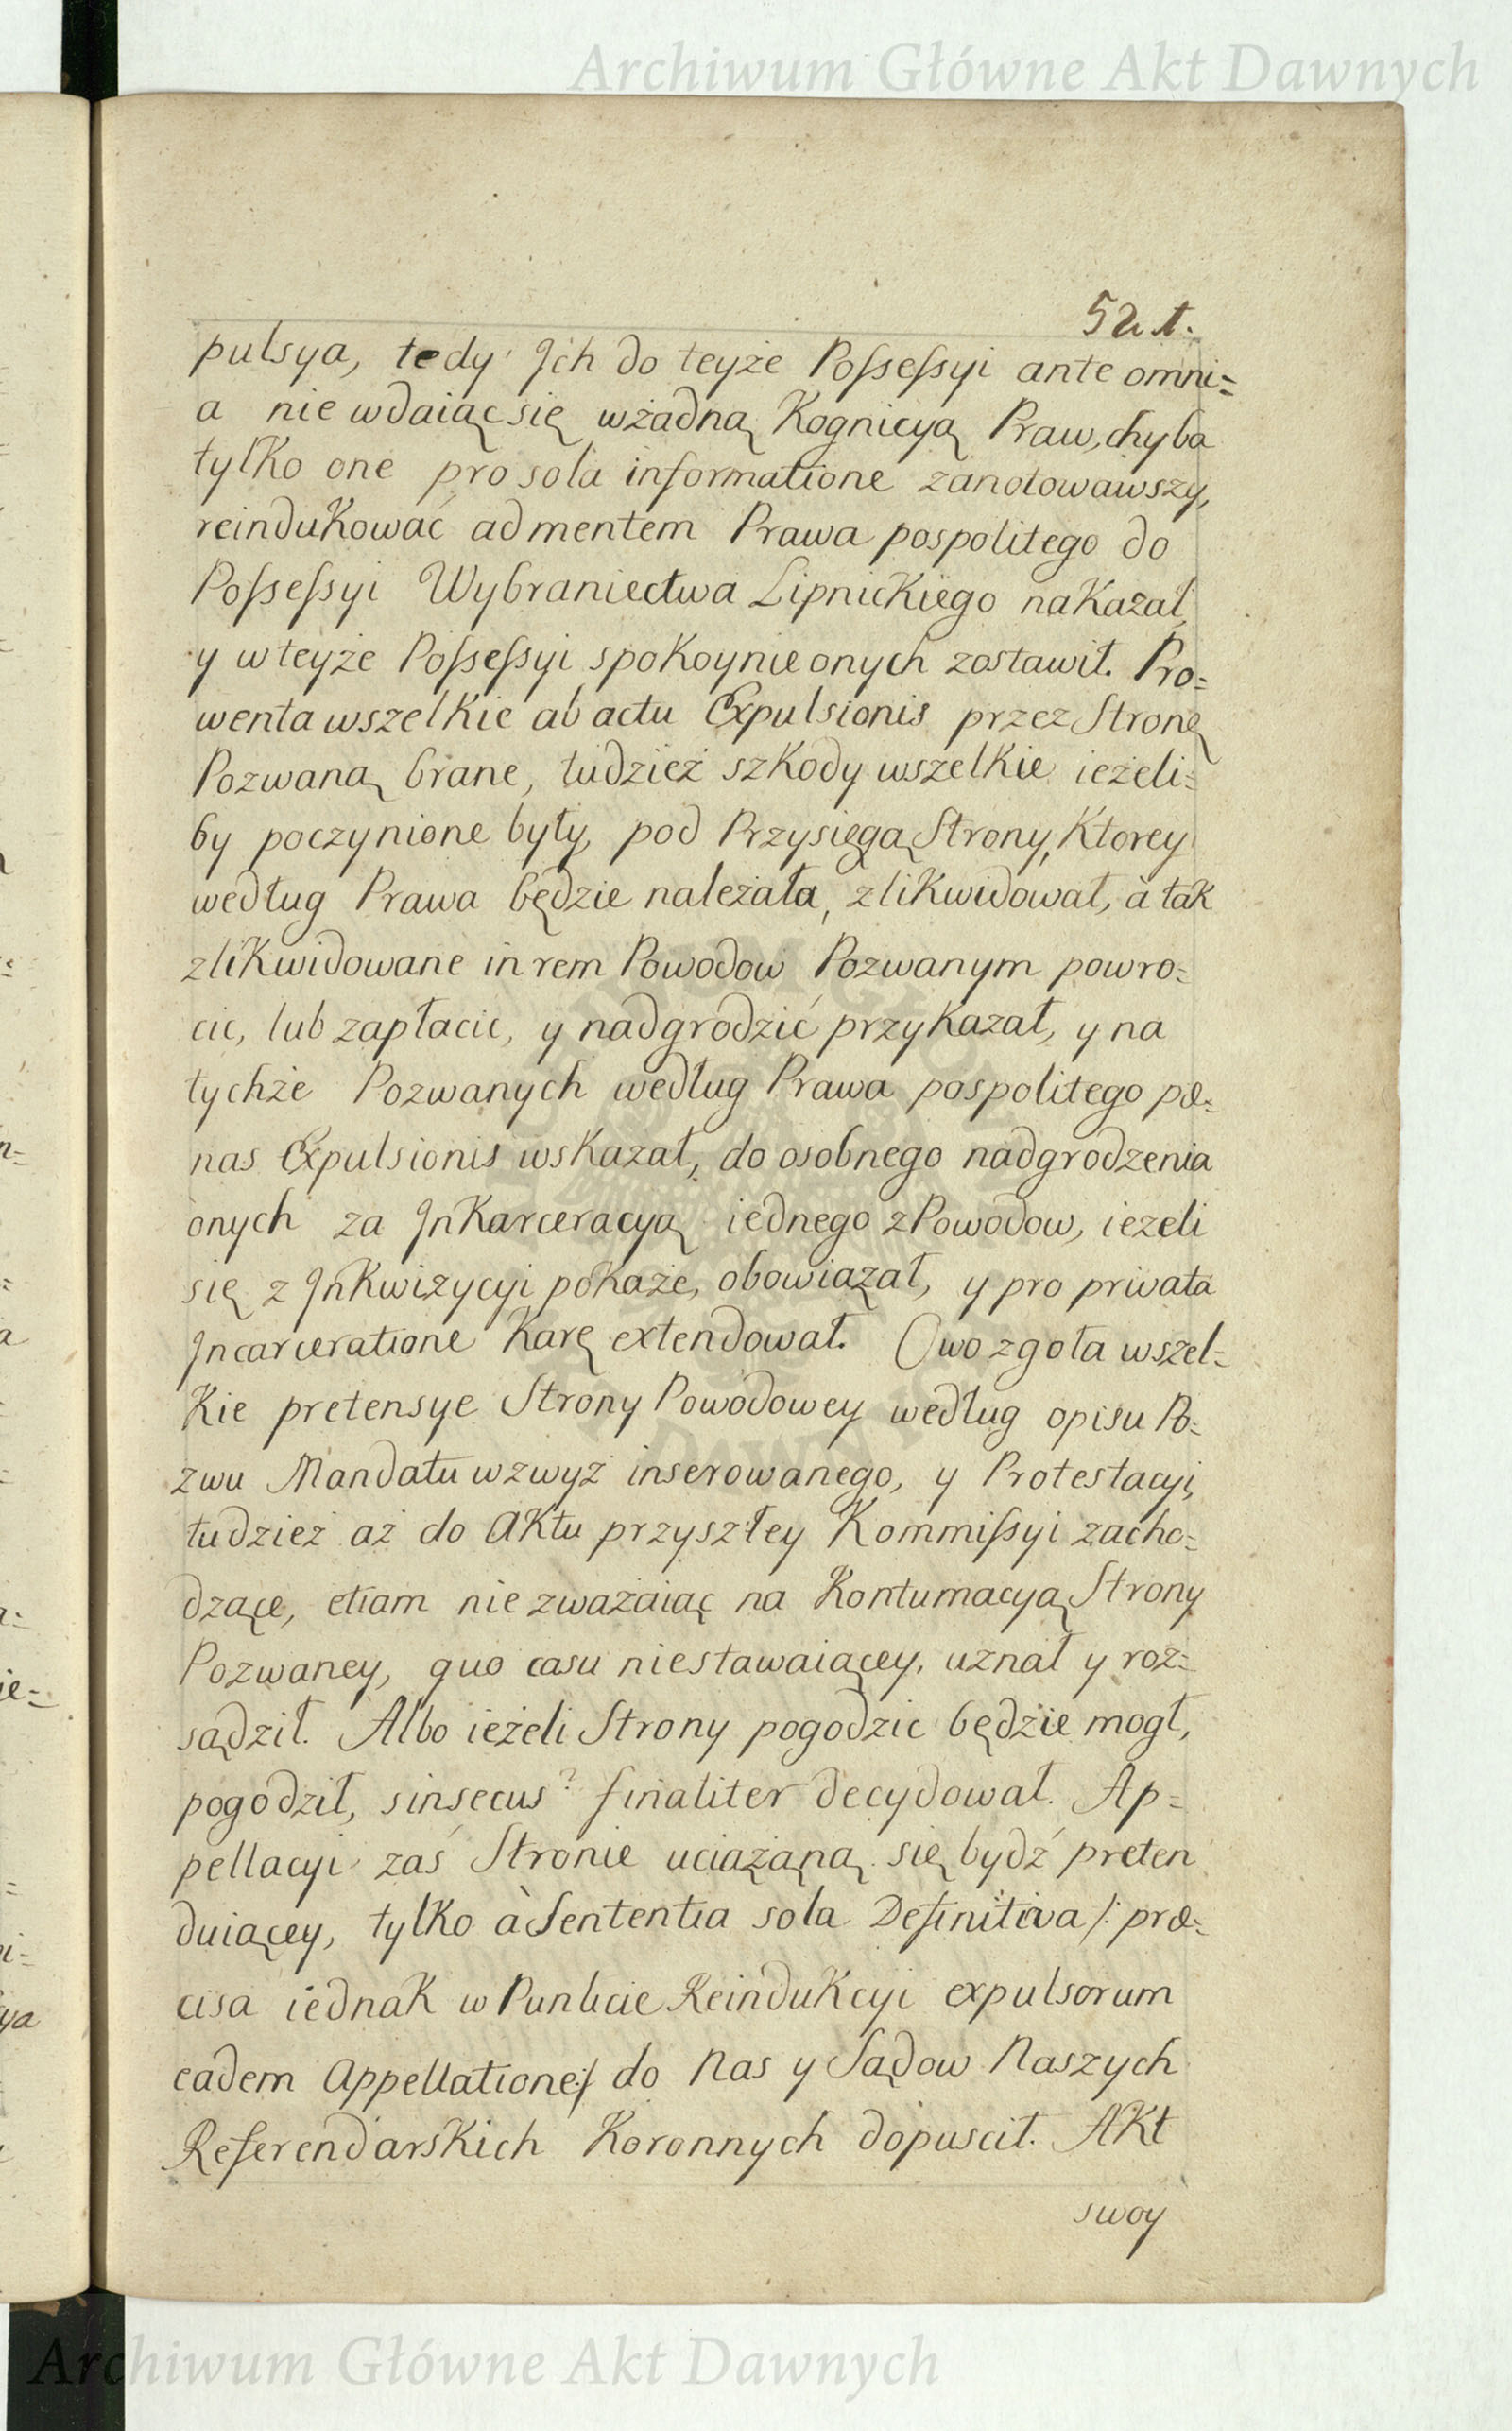 Archiwum Główne Akt Dawnych
52. t.
pulsya, tedy Jch do teyże Possessyi ante omni=
a nie wdaiąc się w żadną Kognicyą Praw, chyba
tylko one pro sola informatione zanotowawszy,
reindukować ad mentem Prawa pospolitego do
Possessyi Wybraniectwa Lipnickiego nakazał,
y w teyże Possessyi spokoynie onych zostawił. Pro=
wenta wszelkie ab actu Expulsionis przez Stronę
Pozwaną brane, tudzież szkody wszelkie ieżeli=
by poczynione były, pod Przysięgą Strony, Ktorey
według Prawa będzie należała, zlikwidował, à tak
zlikwidowane in rem Powodow Pozwanym powro=
cic, lub zapłacic, y nadgrodzić przykazał, y na
tychże Pozwanych według Prawa pospolitego pæ=
nas Expulsionis wskazał, do osobnego nadgrodzenia
onych za Jnkarceracyą iednego z Powodow, ieżeli
się z Jnkwizycyi pokaże, obowiązał, y pro privata
Jncarceratione Karę extendował. Owo zgoła wszel=
kie pretensye Strony Powodowey według opisu Po=
zwu Mandatu wzwyż inserowanego, y Protestacyi,
tudzież aż do Aktu przyszłey Kommissyi zacho=
dzące, etiam nie zważaiąc na Kontumacyą Strony
Pozwaney, quo casu niestawaiącey, uznał y roz=
sądził. Albo ieżeli Strony pogodzic będzie mogł,
pogodził, sinsecus? finaliter decydował. Ap=
pellacyi zaś Stronie uciążaną się bydź preten
duiącey, tylko à Sententia sola Definitiva /: præ=
cisa iednak w Punkcie Reindukcyi expulsorum
eadem Appellatione :/ do Nas y Sądow Naszych
Referendarskich Koronnych dopuscił. Akt
swoy
Archiwum Główne Akt Dawnych